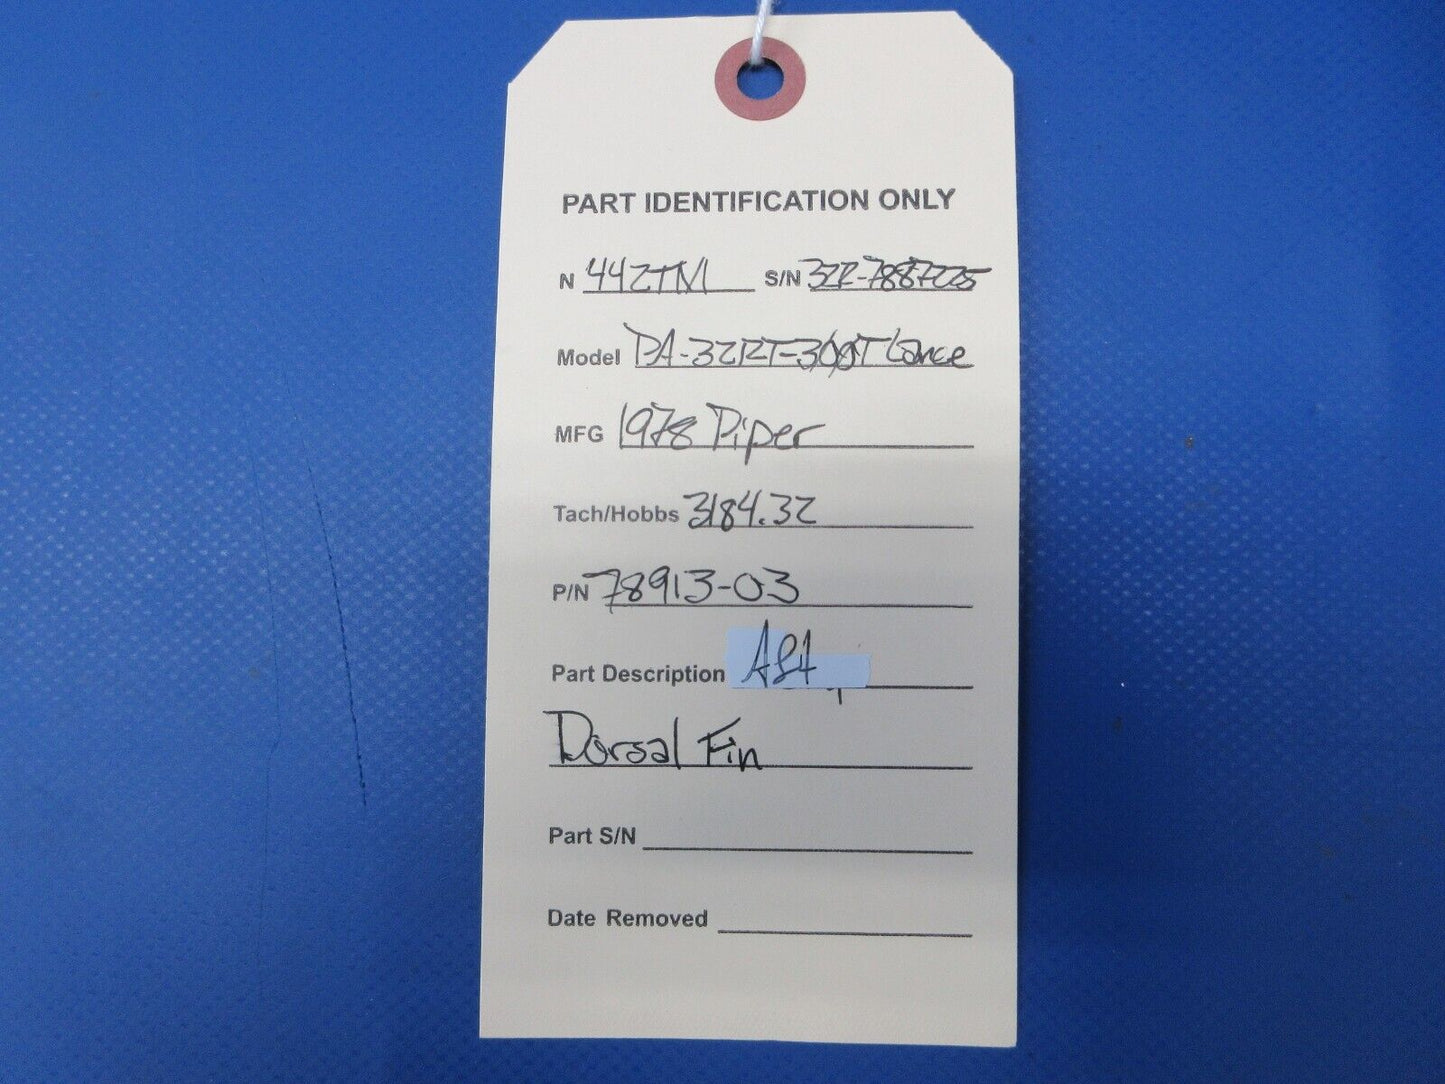 PART IDENTIFICATION ONLY
N 442TM S/N 32R-7887225
Model PA-32RT-300T Lance
MFG 1978 Piper
Tach/Hobbs 3184.32
P/N 78913-03
Part Description Aft
Dorsal Fin
Part S/N
Date Removed